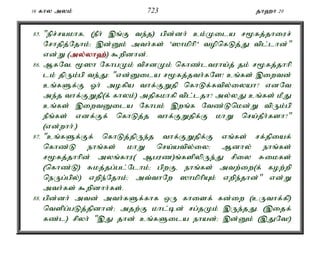 16 கால அலம் 723 தாஹா 20
85. "நிச்சயமாக, (நீர் இங்கு வந்த) பின்னர் உம்முடைய சமூகத்தாரைச்
சோதித்தோம்; இன்னும் அவர்கள் 'ஸாமிரீ' வழிகெடுத்து விட்டான்"
என்று (அல்லாஹ்) கூறினான்.
86. ஆகவே மூஸா கோபமும் விசனமும் கொண்டவராய்த் தம் சமூகத்தாரி
டம் திரும்பி வந்து: "என்னுடைய சமூகத்தவர்களே! உங்கள் இறைவன்
உங்களுக்கு ஓர் அழகிய வாக்குறுதி கொடுக்கவில்லையா? எனவே
அந்த வாக்குறுதி(க் காலம்) அதிகமாகி விட்டதா? அல்லது உங்கள் மீது
உங்கள் இறைவனுடைய கோபம் இறங்க வேண்டுமென்று விரும்பி
நீங்கள் எனக்குக் கொடுத்த வாக்குறுதிக்கு மாறு செய்தீர்களா?"
(என்றார்.)
87. "உங்களுக்குக் கொடுத்திருந்த வாக்குறுதிக்கு எங்கள் சக்தியைக்
கொண்டு நாங்கள் மாறு செய்யவில்லை; ஆனால் நாங்கள்
சமூகத்தாரின் அலங்கார( ஆபரண)ங்களிலிருந்து சில சுமைகள்
(கொண்டு) சுமத்தப்பட்டோம்; பிறகு, நாங்கள் அவற்றை(க் கழற்றி
நெருப்பில்) எறிந்தோம்; அவ்வாறே ஸாமிரீயும் எறிந்தான்" என்று
அவர்கள் கூறினார்கள்.
88. பின்னர் அவன் அவர்களுக்காக ஒரு காளைக் கன்றை (உருவாக்கி)
வெளிப்படுத்தினான்; அதற்கு மாட்டின் சப்தமும் இருந்தது (இதைக்
கண்ட) சிலர் "இது தான் உங்களுடைய நாயன்; இன்னும் (இதுவே)